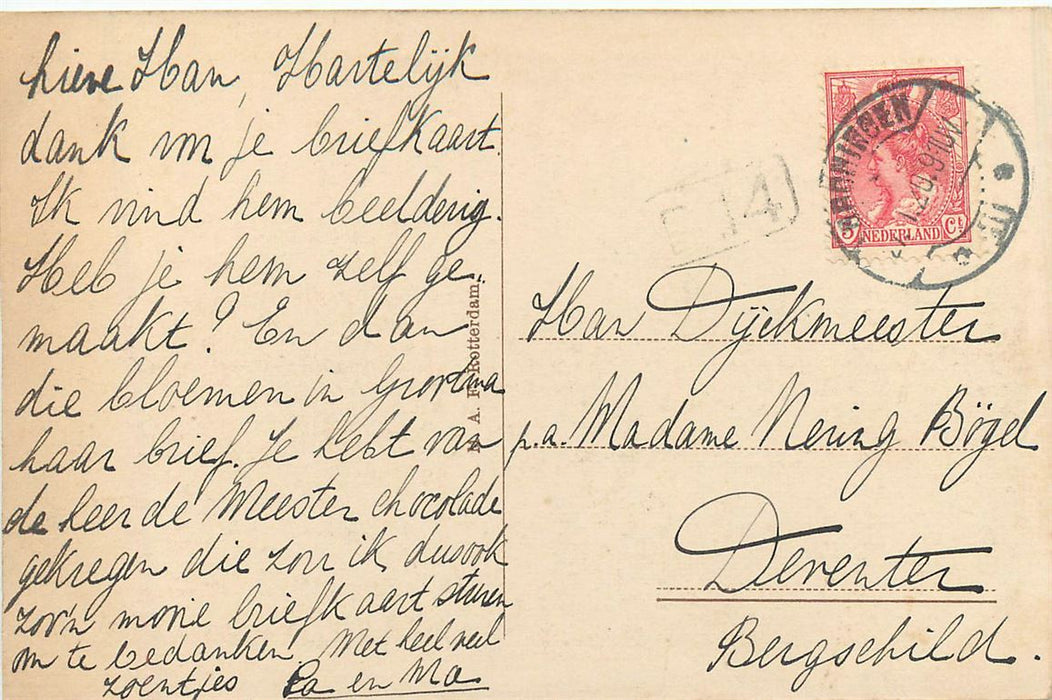 Lieve Han, Hartelijk
dank voor je briefkaart.
Ik vind hem beelderig.
Heb je hem zelf ge-
maakt? En dan
die bloemen in Grootma
haar brief. Je hebt van
de heer de Meester chocolade
gekregen die zou ik dus ook
zoo'n mooie briefkaart sturen
om te bedanken. Met heel veel
zoentjes Pa en Ma
A. F. Rotterdam.
14
5 NEDERLAND Ct
Han Dijckmeester
p.a. Madame Nering Bögel
Deventer
Bergschild.